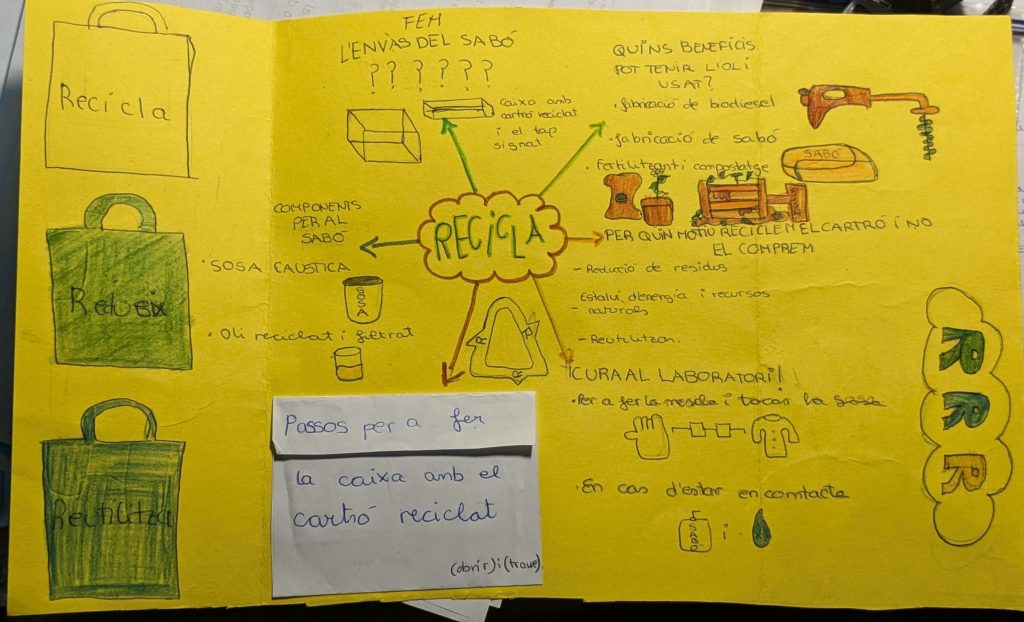 Recicla
Redueix
Reutilitza
FEM
L'ENVÀS DEL SABÓ
? ? ? ? ? ?
Caixa amb
cartró reciclat
i el tap
signat
QUINS BENEFICIS
POT TENIR L'OLI
USAT?
· fabricació de biodiesel
· fabricació de sabó
SABÓ
· Fertilitzant i compostatge
COMPONENTS
PER AL
SABÓ
· SOSA CAUSTICA
SOSA
· Oli reciclat i filtrat
RECICLA
PER QUIN MOTIU RECICLEM EL CARTRÓ I NO
EL COMPREM
- Reducció de residus
- Estalvi d'energia i recursos
- naturals
- Reutilitzan.
R
R
R
¡CURA AL LABORATORI!
· Per a fer la mescla i tocar la sosa
· En cas d'estar en comtacte
SABÓ
i
Passos per a fer
la caixa amb el
cartró reciclat
(obrir) i (traure)
R
R
R